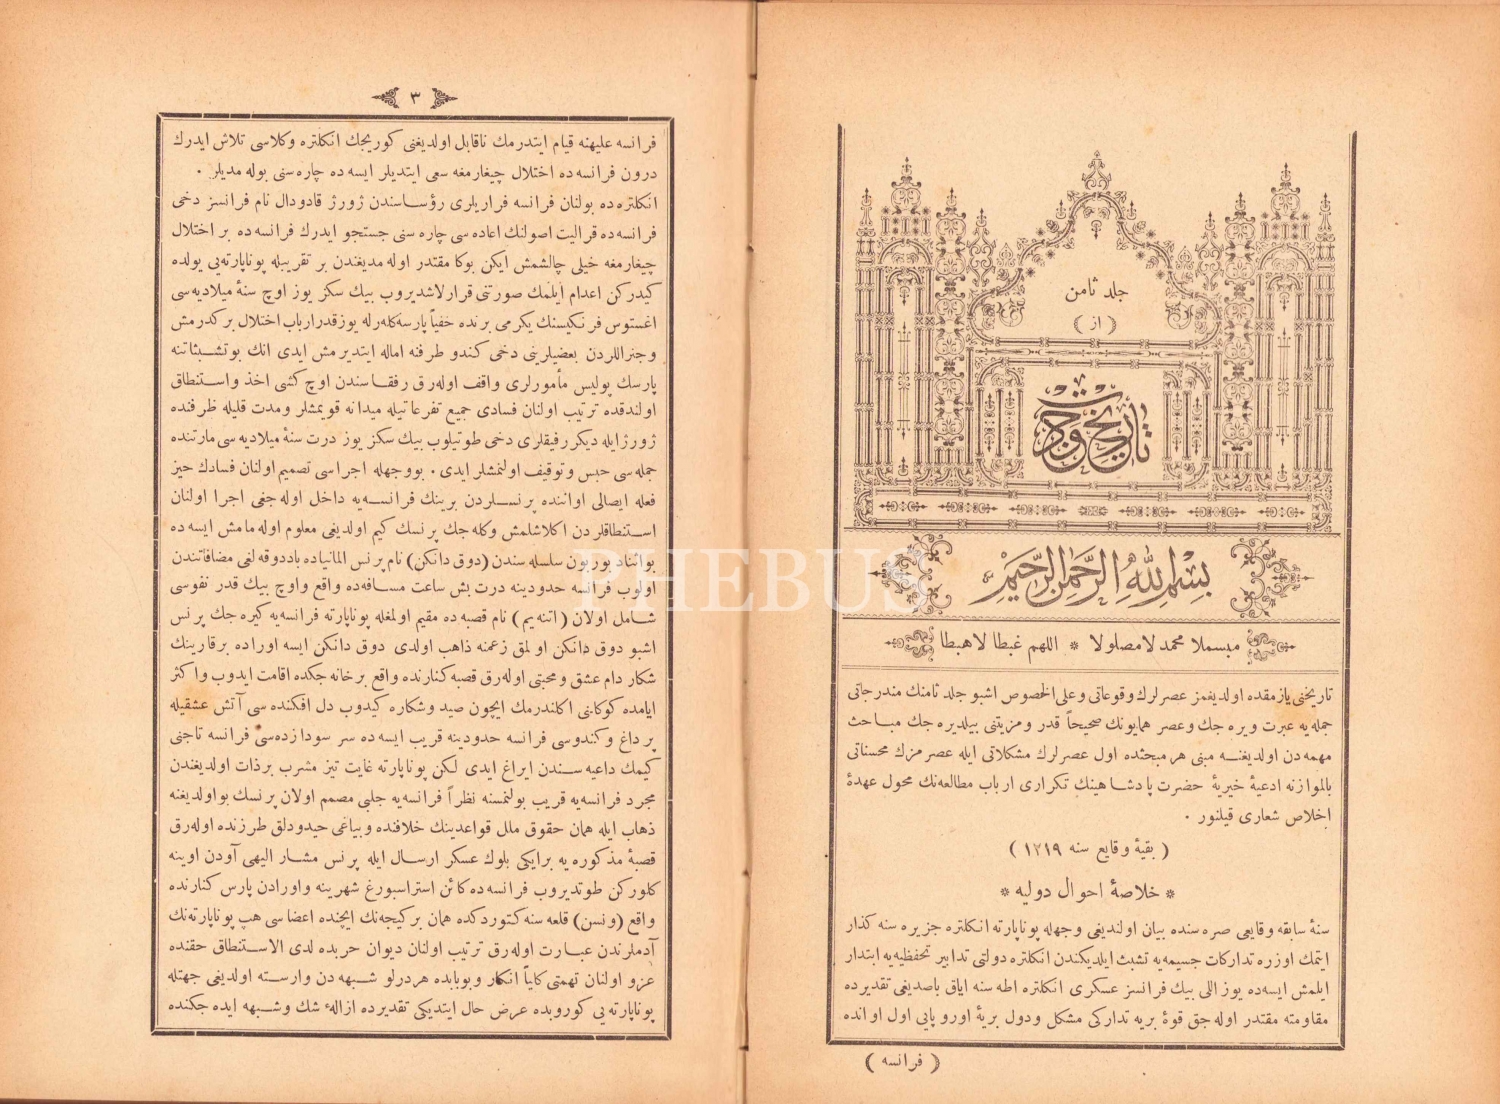 جلد ثامن
( از )
تاریخ جودت
بسم الله الرحمن الرحیم
مبسملا محمدلا مصلولا * اللهم غبطا لاهبطا
تاریخنی یازمقده اولدیغمز عصرلرك وقوعاتی وعلی الخصوص اشبو جلد ثامنك مندرجاتی
جمله‌یه عبرت ویره جك وعصر همایونك صحیحاً قدر ومزیتنی بیلدیره جك مباحث
مهمه دن اولدیغنه مبنی هر مبحثده اول عصرلرك مشكلاتی ایله عصر مزك محسناتی
بالموازنه ادعیۀ خیریۀ حضرت پادشاهینك تكراری ارباب مطالعه‌نك محول عهدۀ
اخلاص شعاری قیلنور ٠
( بقیۀ وقایع سنه ١٢١٩ )
* خلاصۀ احوال دولیه *
سنۀ سابقه وقایعی صره سنده بیان اولندیغی وجهله پوناپارته انكلتره جزیره سنه كذار
ایتمك اوزره تداركات جسیمه‌یه تشبث ایلدیكندن انكلتره دولتی تدابیر تحفظیه‌یه ابتدار
ایلمش ایسه‌ده یوز اللی بیك فرانسز عسكری انكلتره اطه سنه ایاق باصدیغی تقدیرده
مقاومته مقتدر اوله جق قوۀ بریه تداركی مشكل ودول بریۀ اوروپایی اول اوانده
( فرانسه )
٣
فرانسه علیهنه قیام ایتدرمك ناقابل اولدیغنی كوریجك انكلتره وكلاسی تلاش ایدرك
درون فرانسه‌ده اختلال چیغارمغه سعی ایتدیلر ایسه ده چاره سنی بوله مدیلر ٠
انكلتره‌ده بولنان فرانسه فراریلری رؤساسندن ژورژ قادودال نام فرانسز دخی
فرانسه‌ده قرالیت اصولنك اعاده سی چاره سنی جستجو ایدرك فرانسه‌ده بر اختلال
چیغارمغه خیلی چالشمش ایكن بوكا مقتدر اوله مدیغندن بر تقریبله پوناپارته‌یی یولده
كیدركن اعدام ایلمك صورتنی قرارلاشدیروب بیك سكز یوز اوچ سنۀ میلادیه‌سی
اغستوس فرنكیسنك یكرمی برنده خفیاً پارسه كله‌رله یوز قدر ارباب اختلال بركدرمش
وجنراللردن بعضیلرینی دخی كندو طرفنه اماله ایتدیرمش ایدی انك بوتشبثاتنه
پارسك پولیس مأمورلری واقف اوله‌رق رفقاسندن اوچ كشی اخذ واستنطاق
اولندقده ترتیب اولنان فسادی جمیع تفرعاتیله میدانه قویمشلر ومدت قلیله ظرفنده
ژورژ ایله دیكر رفیقلری دخی طوتیلوب بیك سكز یوز درت سنۀ میلادیه سی مارتنده
جمله سی حبس وتوقیف اولنمشلر ایدی ٠ بووجهله اجراسی تصمیم اولنان فسادك حیز
فعله ایصالی اوانده پرنسلردن برینك فرانسه‌یه داخل اوله جغی اجرا اولنان
استنطاقلردن اكلاشلمش وكله جك پرنسك كیم اولدیغی معلوم اوله مامش ایسه ده
بوائناد بوربون سلسله سندن (دوق دانكن) نام پرنس المانیاده باددوقه لغی مضافاتندن
اولوب فرانسه حدودینه درت بش ساعت مسافه‌ده واقع واوچ بیك قدر نفوسی
شامل اولان ( اتنه‌یم ) نام قصبه ده مقیم اولمغله پوناپارته فرانسه‌یه كیره جك پرنس
اشبو دوق دانكن اولمق زعمنه ذاهب اولدی دوق دانكن ایسه اوراده برقارینك
شكار دام عشق ومحبتی اوله‌رق قصبه كنارنده واقع برخانه جكده اقامت ایدوب واكثر
ایامده كوكلنی اكلندرمك ایچون صید وشكاره كیدوب دل افكنده سی آتش عشقیله
پر داغ وكندوسی فرانسه حدودینه قریب ایسه ده سر سودازده‌سی فرانسه تاجنی
كیمك داعیه سندن ایراغ ایدی لكن پوناپارته غایت تیز مشرب برذات اولدیغندن
مجرد فرانسه‌یه قریب بولنمسنه نظراً فرانسه‌یه جلبی مصمم اولان پرنسك بواولدیغنه
ذهاب ایله همان حقوق ملل قواعدینك خلافنده وبیاغی حیدودلق طرزنده اوله‌رق
قصبۀ مذكوره‌یه برایكی بلوك عسكر ارسال ایله پرنس مشار الیهی آودن اوینه
كلوركن طوتدیروب فرانسه‌ده كائن استراسبورغ شهرینه واورادن پارس كنارنده
واقع (ونسن) قلعه سنه كتوردكده همان بركیجه‌نك ایچنده اعضاسی هپ پوناپارته‌نك
آدملرندن عبارت اوله‌رق ترتیب اولنان دیوان حربده لدی الاستنطاق حقنده
عزو اولنان تهمتی كلیاً انكار وبوبابده هردرلو شبهه دن وارسته اولدیغی جهتله
پوناپارته‌یی كوروبده عرض حال ایتدیكی تقدیرده ازالۀ شك وشبهه ایده جكنده
PHEBUS